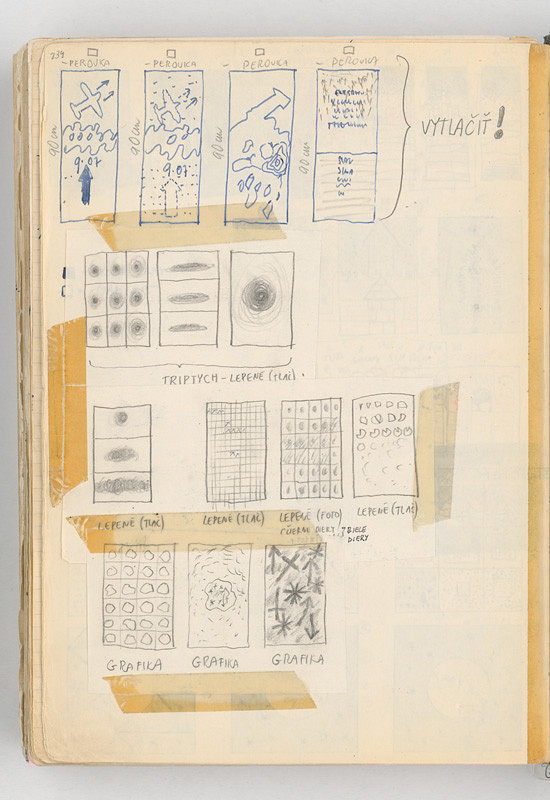 234
- PEROVKA - PEROVKA - PEROVKA - PEROVKA
90 cm 90 cm 90 cm 90 cm
9.07 9.07
VYTLAČIŤ!
TRIPTYCH - LEPENÉ (TLAČ).
LEPENÉ (TLAČ) LEPENÉ (TLAČ) LEPENÉ (FOTO) LEPENÉ (TLAČ)
ČIERNE DIERY BIELE
DIERY
GRAFIKA GRAFIKA GRAFIKA